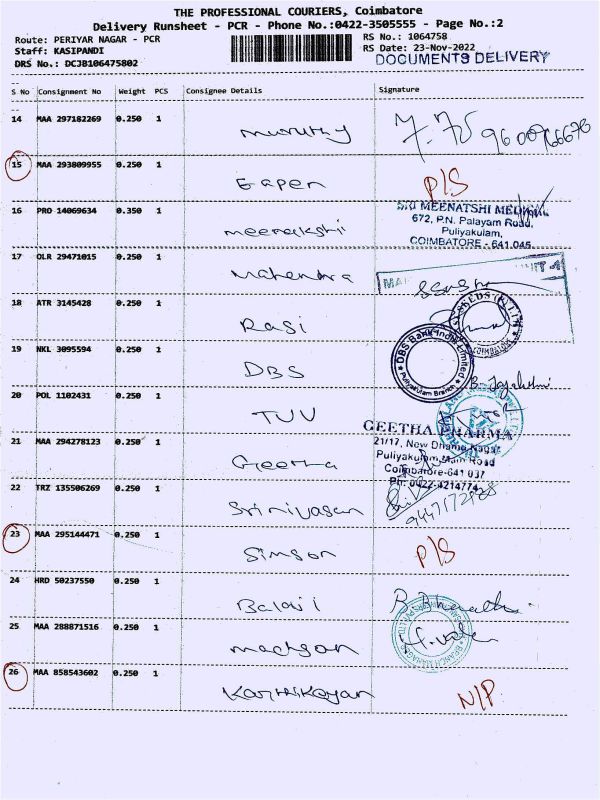 THE PROFESSIONAL COURIERS, Coimbatore
Delivery Runsheet - PCR - Phone No.:0422-3505555 - Page No.:2
Route: PERIYAR NAGAR - PCR
RS No.: 1064758
Staff: KASIPANDI
RS Date: 23-Nov-2022
DRS No.: DCJB106475802
DOCUMENTS DELIVERY
S No Consignment No Weight PCS Consignee Details Signature
14 MAA 297182269 0.250 1
Muruthy
15 MAA 293809955 0.250 1
Eapen P/S
16 PRO 14069634 0.350 1
meenakshi
SRI MEENATSHI MEDICAL
672, P.N. Palayam Road,
Puliyakulam,
COIMBATORE - 641 045
17 OLR 29471015 0.250 1
Mahendra
18 ATR 3145428 0.250 1
Rasi
COIMBATORE
19 NKL 3095594 0.250 1
DBS
DBS Bank India Limited
Puliyakulam Branch
20 POL 1102431 0.250 1
TUV
21 MAA 294278123 0.250 1
Geetha
GEETHA PHARMA
21/17, New Dhamu Nagar
Puliyakulam Main Road
Coimbatore-641 037
Ph: 0422-4214774
22 TRZ 135506269 0.250 1
Srinivasan
23 MAA 295144471 0.250 1
Simson P/S
24 HRD 50237550 0.250 1
Balaji
25 MAA 288871516 0.250 1
madhan
26 MAA 858543602 0.250 1
Karthikeyan N/P